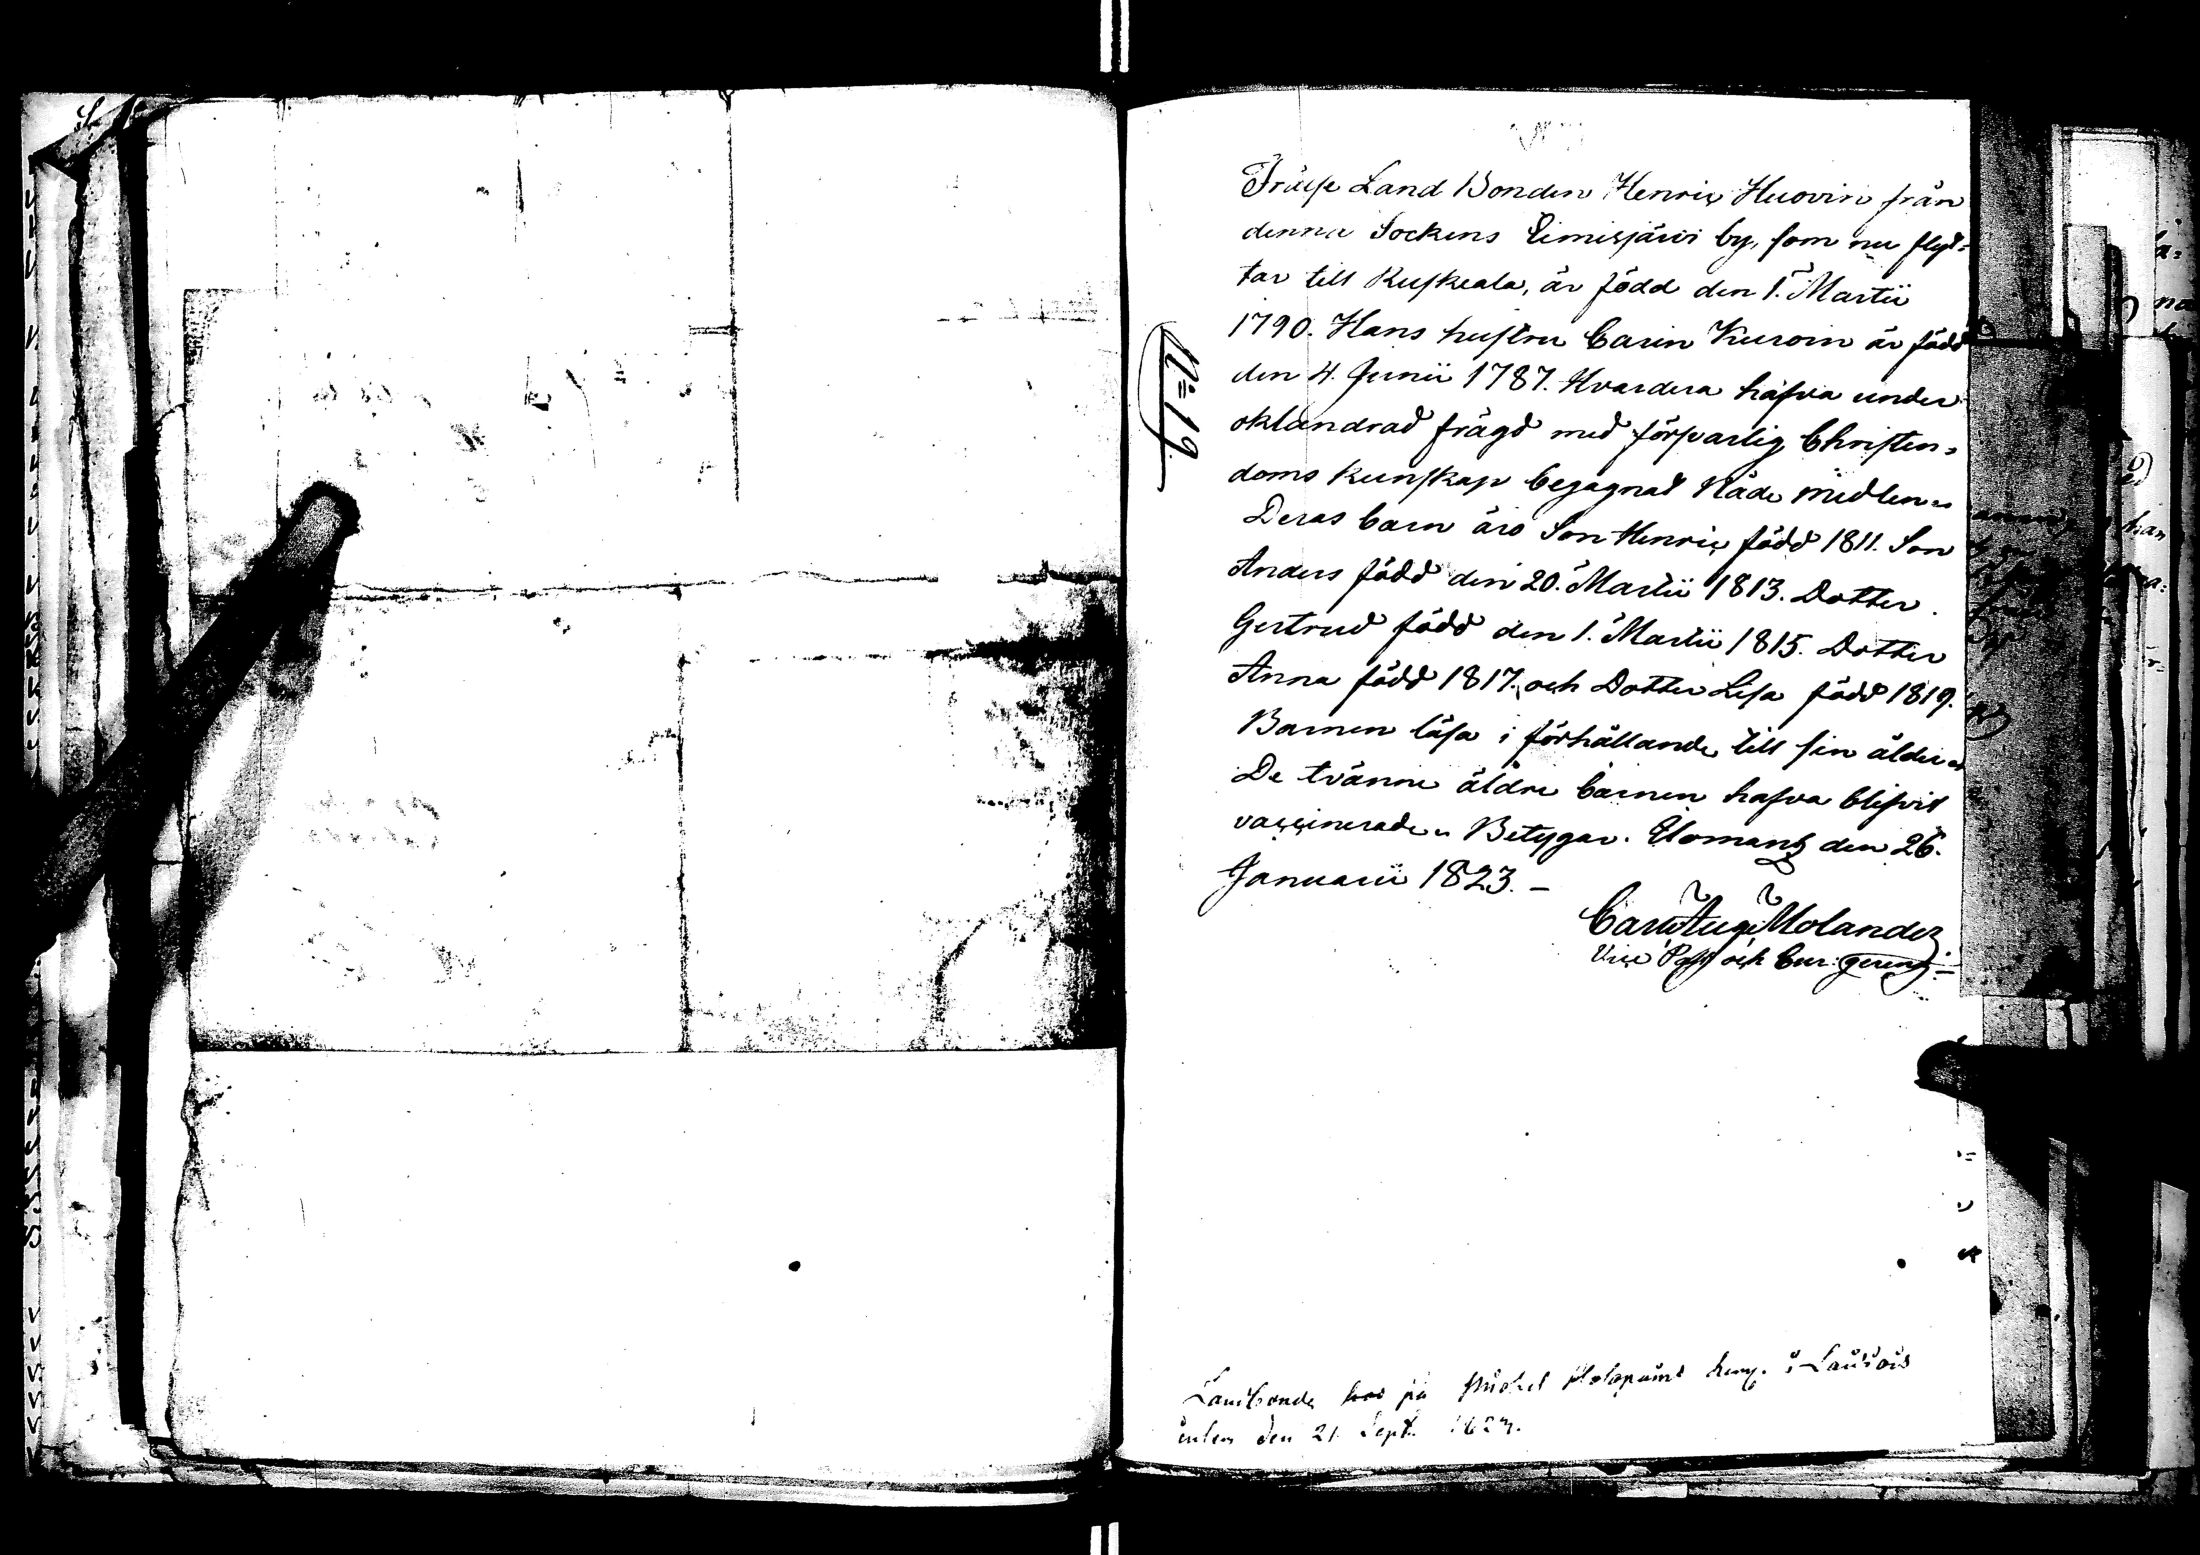 N:o 19.
Frälse Land Bonden Henric Huovin från
denna Sockens Eimisjärvi by, som nu flyt=
tar till Ruskeala, är född den 1. Martii
1790. Hans hustru Carin Kurvin är född
den 4. Junii 1787. Hvardera hafva under
oklandrad frägd med försvarlig Christen=
doms kunskap begagnat Nåde medlen.
Deras barn äro Son Henric född 1811. Son
Anders född den 20. Martii 1813. Dotter
Gertrud född den 1. Martii 1815. Dotter
Anna född 1817. och Dotter Lisa född 1819.
Barnen läsa i förhållande till sin ålder
De tvänne äldre barnen hafva blifvit
vaccinerade. Betygar. Ilomantz den 26.
Januarii 1823. –
Carl Aug: Molander
Vice Past och Cur: gerens
Landbonde på Michel i
den 21 Sept.